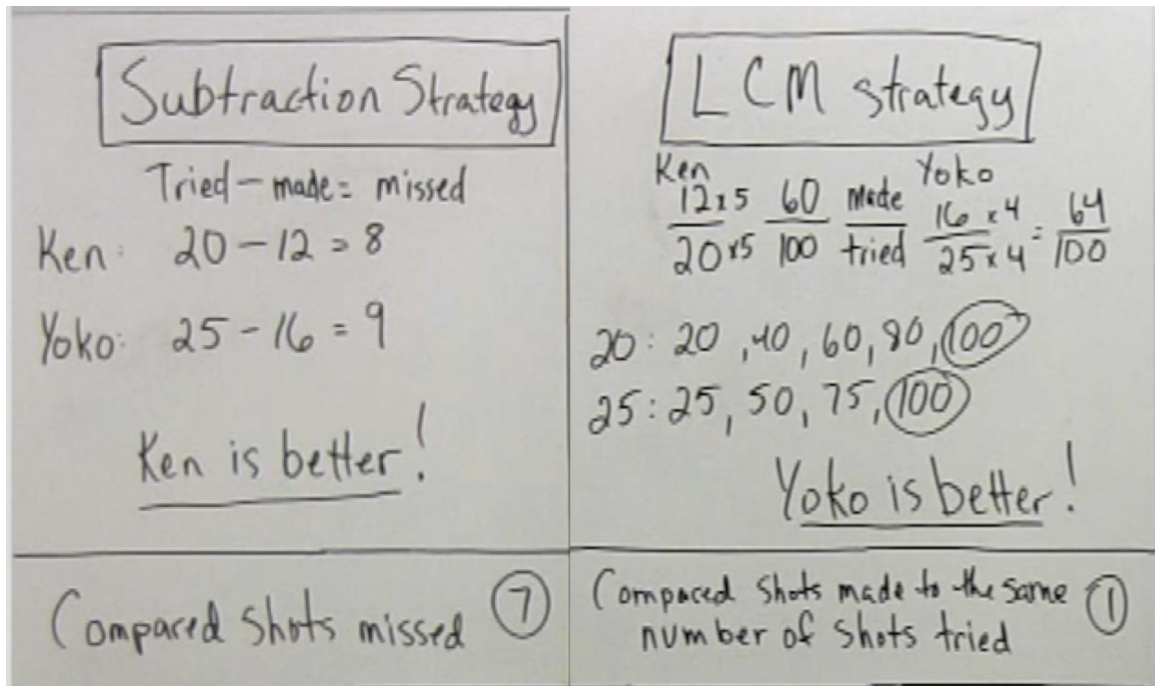 Subtraction Strategy
Tried - made = missed
Ken: 20 - 12 = 8
Yoko: 25 - 16 = 9
Ken is better!
Compared Shots missed ⑦
LCM strategy
Ken Yoko
12x5 60 made 16 x 4 64
20x5 100 tried 25 x 4 = 100
20: 20, 40, 60, 80, 100
25: 25, 50, 75, 100
Yoko is better!
Compared shots made to the same ①
number of shots tried